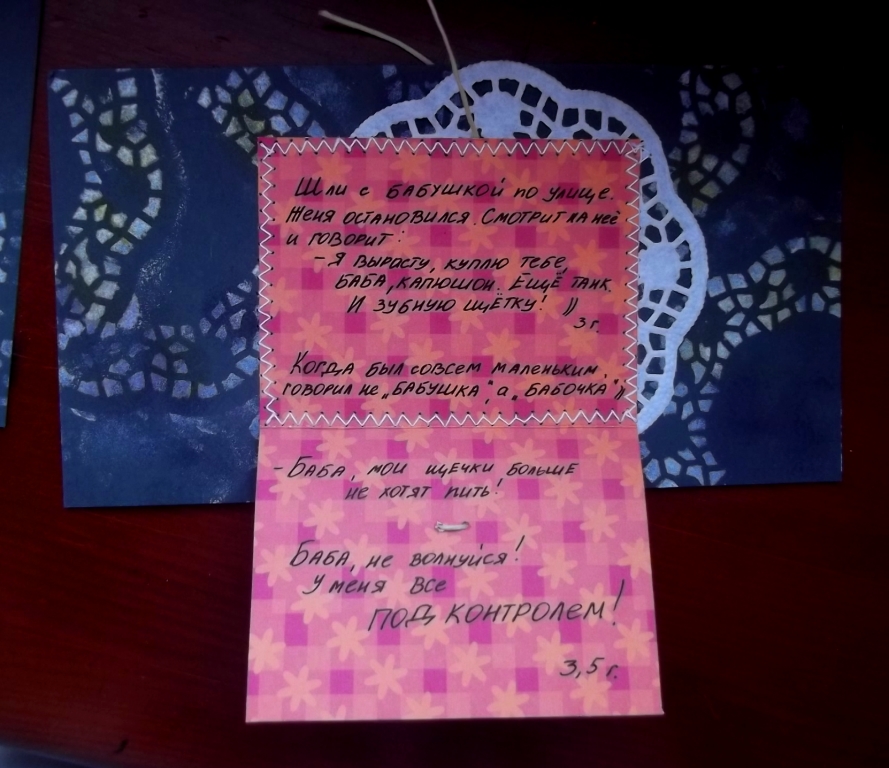 Шли с БАБУШКОЙ по улице.
Женя остановился. Смотрит на неё
и говорит:
- Я вырасту, куплю тебе,
БАБА, капюшон. Ещё танк.
И зубную щётку! ))
3 г.
Когда был совсем маленьким,
говорил не „БАБУШКА", а „БАБОЧКА"))
- БАБА, мои щечки больше
не хотят пить!
БАБА, не волнуйся!
У меня все
ПОД КОНТРОЛЕМ!
3,5 г.